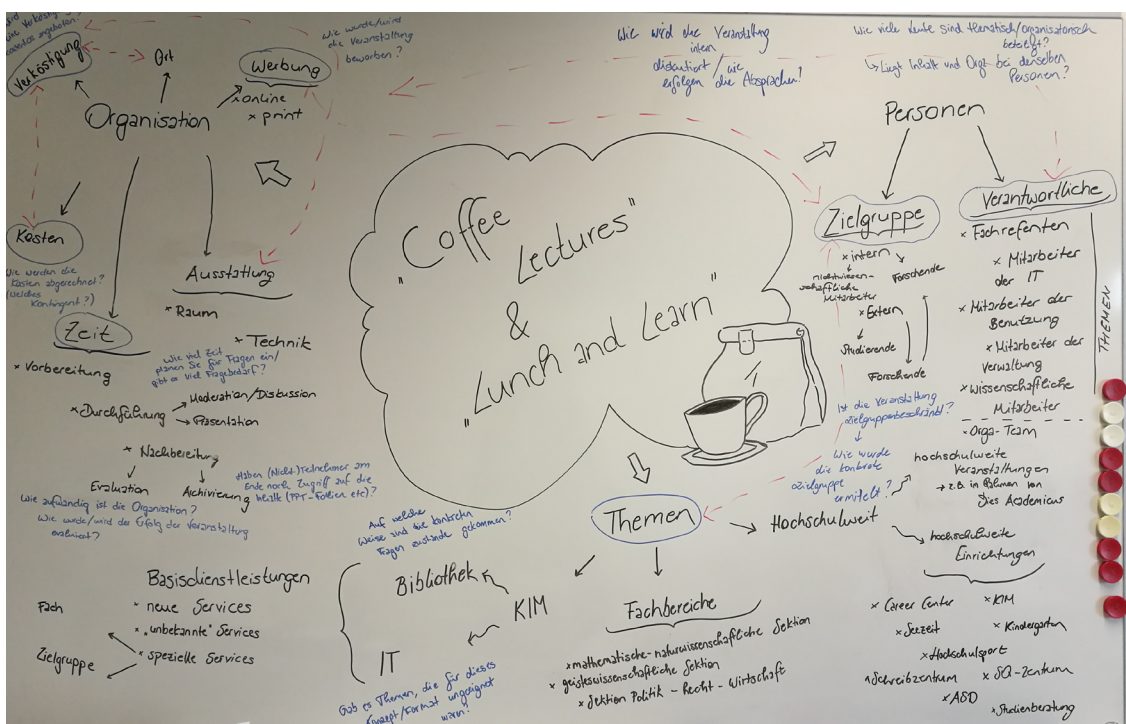 wird
eine Verköstigung
kostenlos angeboten?
Verköstigung
Ort
Werbung
× online
× print
Wie wurde/wird
die Veranstaltung
beworben?
Organisation
Kosten
Wie werden die
Kosten abgerechnet?
(welches
Kontingent?)
Ausstattung
× Raum
× Technik
Zeit
× Vorbereitung
Wie viel Zeit
planen Sie für Fragen ein/
gibt es viel Fragebedarf?
× Durchführung
Moderation/Discussion
Präsentation
× Nachbereitung
Evaluation
Archivierung
Haben (Nicht-)Teilnehmer am
Ende noch Zugriff auf die
Inhalte (PPT-Folien etc)?
Wie aufwändig ist die Organisation?
Wie wurde/wird der Erfolg der Veranstaltung
evaluiert?
Wie wird die Veranstaltung
intern
diskutiert/wie
erfolgen die Absprachen?
Wie viele Leute sind thematisch/organisatorisch
beteiligt?
Liegt Inhalt und Orga bei denselben
Personen?
"Coffee
Lectures"
&
"Lunch and Learn"
Personen
Zielgruppe
× intern
nichtwissen-
schaftliche
Mitarbeiter
Forschende
× Extern
Studierende
Forschende
Ist die Veranstaltung
zielgruppenbeschränkt?
Wie wurde
die konkrete
Zielgruppe
ermittelt?
Verantwortliche
× Fachreferenten
× Mitarbeiter
der IT
× Mitarbeiter der
Benutzung
× Mitarbeiter der
Verwaltung
× wissenschaftliche
Mitarbeiter
× Orga-Team
THEMEN
Themen
Auf welche
Weise sind die konkreten
Fragen zustande gekommen?
Hochschulweit
hochschulweite
Veranstaltungen
→ z.B. im Rahmen von
Dies Academicus
hochschulweite
Einrichtungen
× Career Center
× KIM
× Seezeit
× Kindergarten
× Hochschulsport
× Schreibzentrum
× SQ-Zentrum
× ASD
× Studienberatung
Fachbereiche
× mathematische-naturwissenschaftliche Sektion
× geisteswissenschaftliche Sektion
× Sektion Politik - Recht - Wirtschaft
KIM
Bibliothek
IT
Gab es Themen, die für dieses
Konzept/Format ungeeignet
waren?
Basisdienstleistungen
× neue Services
× "unbekannte" Services
× spezielle Services
Fach
Zielgruppe